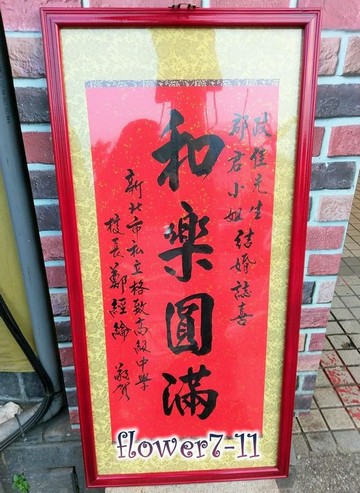 政佳先生
郡君小姐 結婚誌喜
和樂圓滿
新北市私立格致高級中學
校長鄭經綸 敬賀
flower7-11